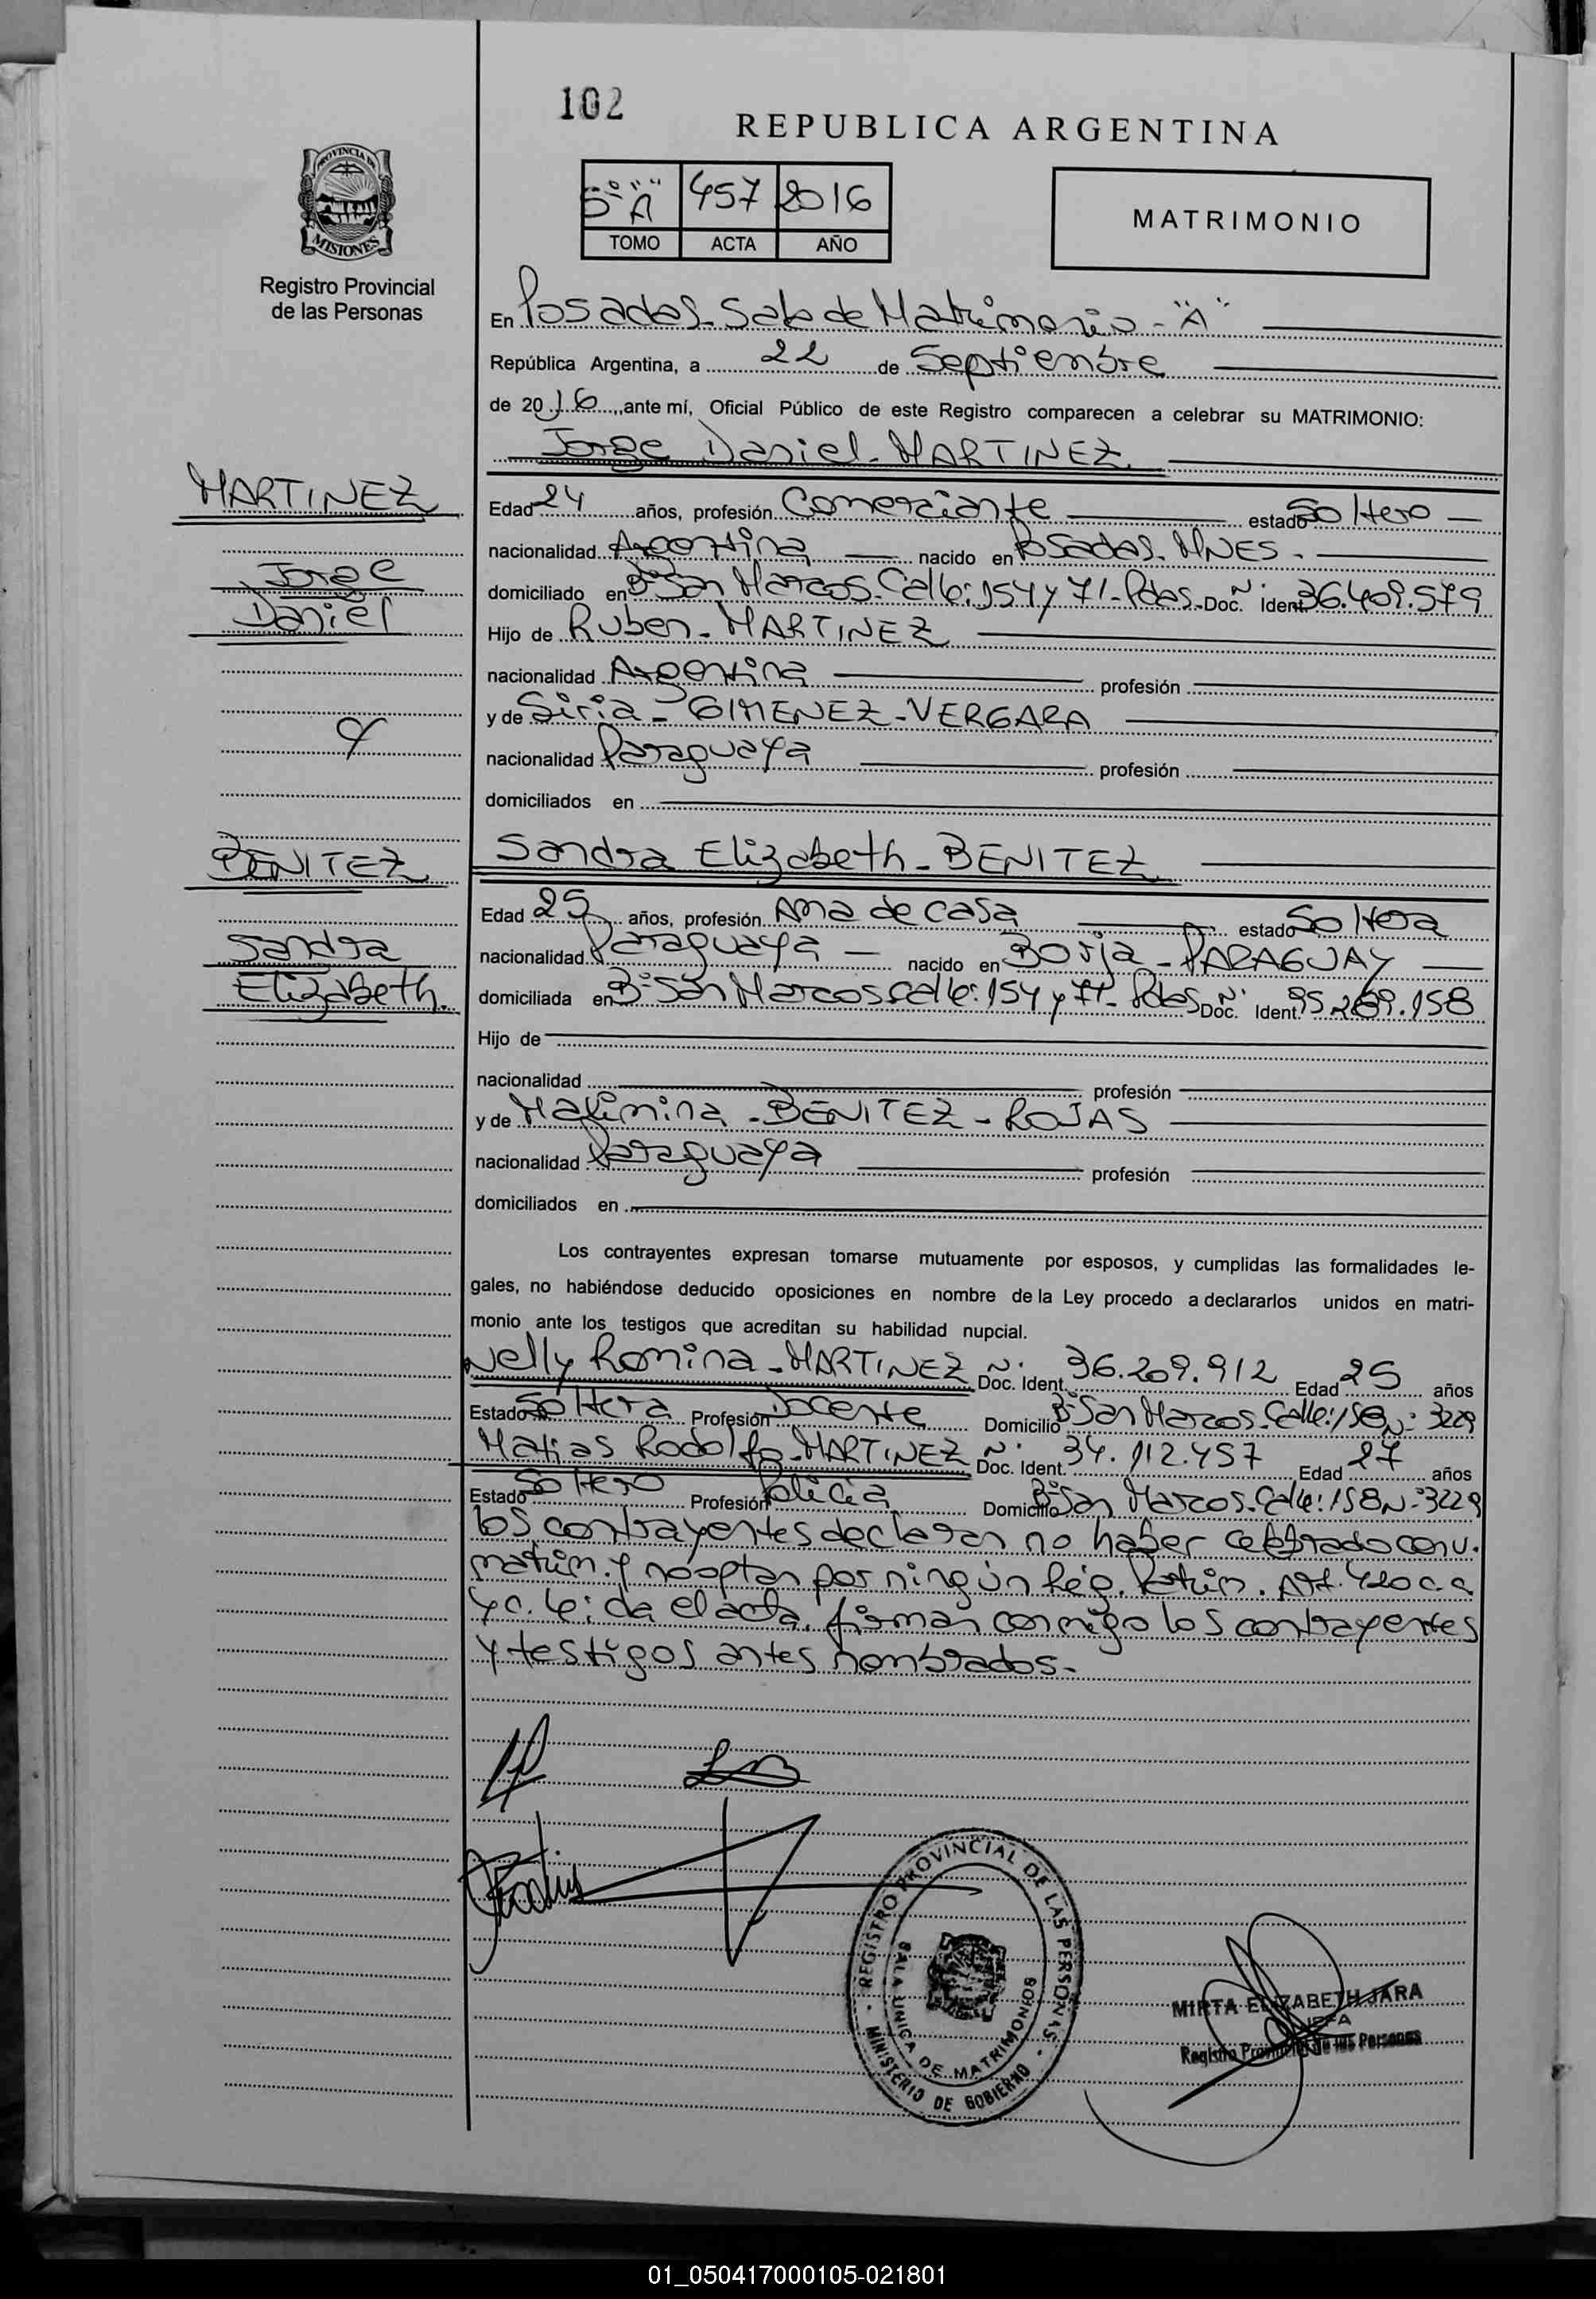 102
REPUBLICA ARGENTINA
PROVINCIA DE
MISIONES
Registro Provincial
de las Personas
5° "A" 457 2016
TOMO ACTA AÑO
MATRIMONIO
En Posadas. Sala de Matrimonio - "A"
República Argentina, a 22 de Septiembre
de 2016, ante mí, Oficial Público de este Registro comparecen a celebrar su MATRIMONIO:
Jorge Daniel - MARTINEZ
MARTINEZ
Jorge
Daniel
y
BENITEZ
Sandra
Elizabeth.
Edad 24 años, profesión Comerciante estado Soltero
nacionalidad Argentina nacido en Posadas. MNES.
domiciliado en B° San Marcos. Calle: 154 y 71 - Pdas. Doc. N° Ident. 36.409.579
Hijo de Ruben - MARTINEZ
nacionalidad Argentina profesión
y de Siria - GIMENEZ - VERGARA
nacionalidad Paraguaya profesión
domiciliados en
Sandra Elizabeth - BENITEZ
Edad 25 años, profesión Ama de casa estado Soltera
nacionalidad Paraguaya nacido en Borja - PARAGUAY
domiciliada en B° San Marcos Calle: 154 y 71 - Pdas Doc. N° Ident. 95.269.158
Hijo de
nacionalidad profesión
y de BENITEZ - ROJAS
nacionalidad Paraguaya profesión
domiciliados en
Los contrayentes expresan tomarse mutuamente por esposos, y cumplidas las formalidades le-
gales, no habiéndose deducido oposiciones en nombre de la Ley procedo a declararlos unidos en matri-
monio ante los testigos que acreditan su habilidad nupcial.
Nelly Romina - MARTINEZ N° Doc. Ident. 36.209.912 Edad 25 años
Estado Soltera Profesión Docente Domicilio B° San Marcos. Calle: 158 N° 3229
Matias Rodolfo - MARTINEZ N° Doc. Ident. 34.112.457 Edad 27 años
Estado Soltero Profesión Policia Domicilio B° San Marcos. Calle: 158 N° 3229
los contrayentes declaran no haber celebrado conv.
matrim. y no optan por ningún Rég. Patrim. Art. 420 C.C
y C. leida el acta, firman conmigo los contrayentes
y testigos antes nombrados.-
REGISTRO PROVINCIAL DE LAS PERSONAS
SALA UNICA DE MATRIMONIOS
MINISTERIO DE GOBIERNO
MIRTA ELIZABETH JARA
JEFA
Registro Provincial de las Personas
01_050417000105-021801